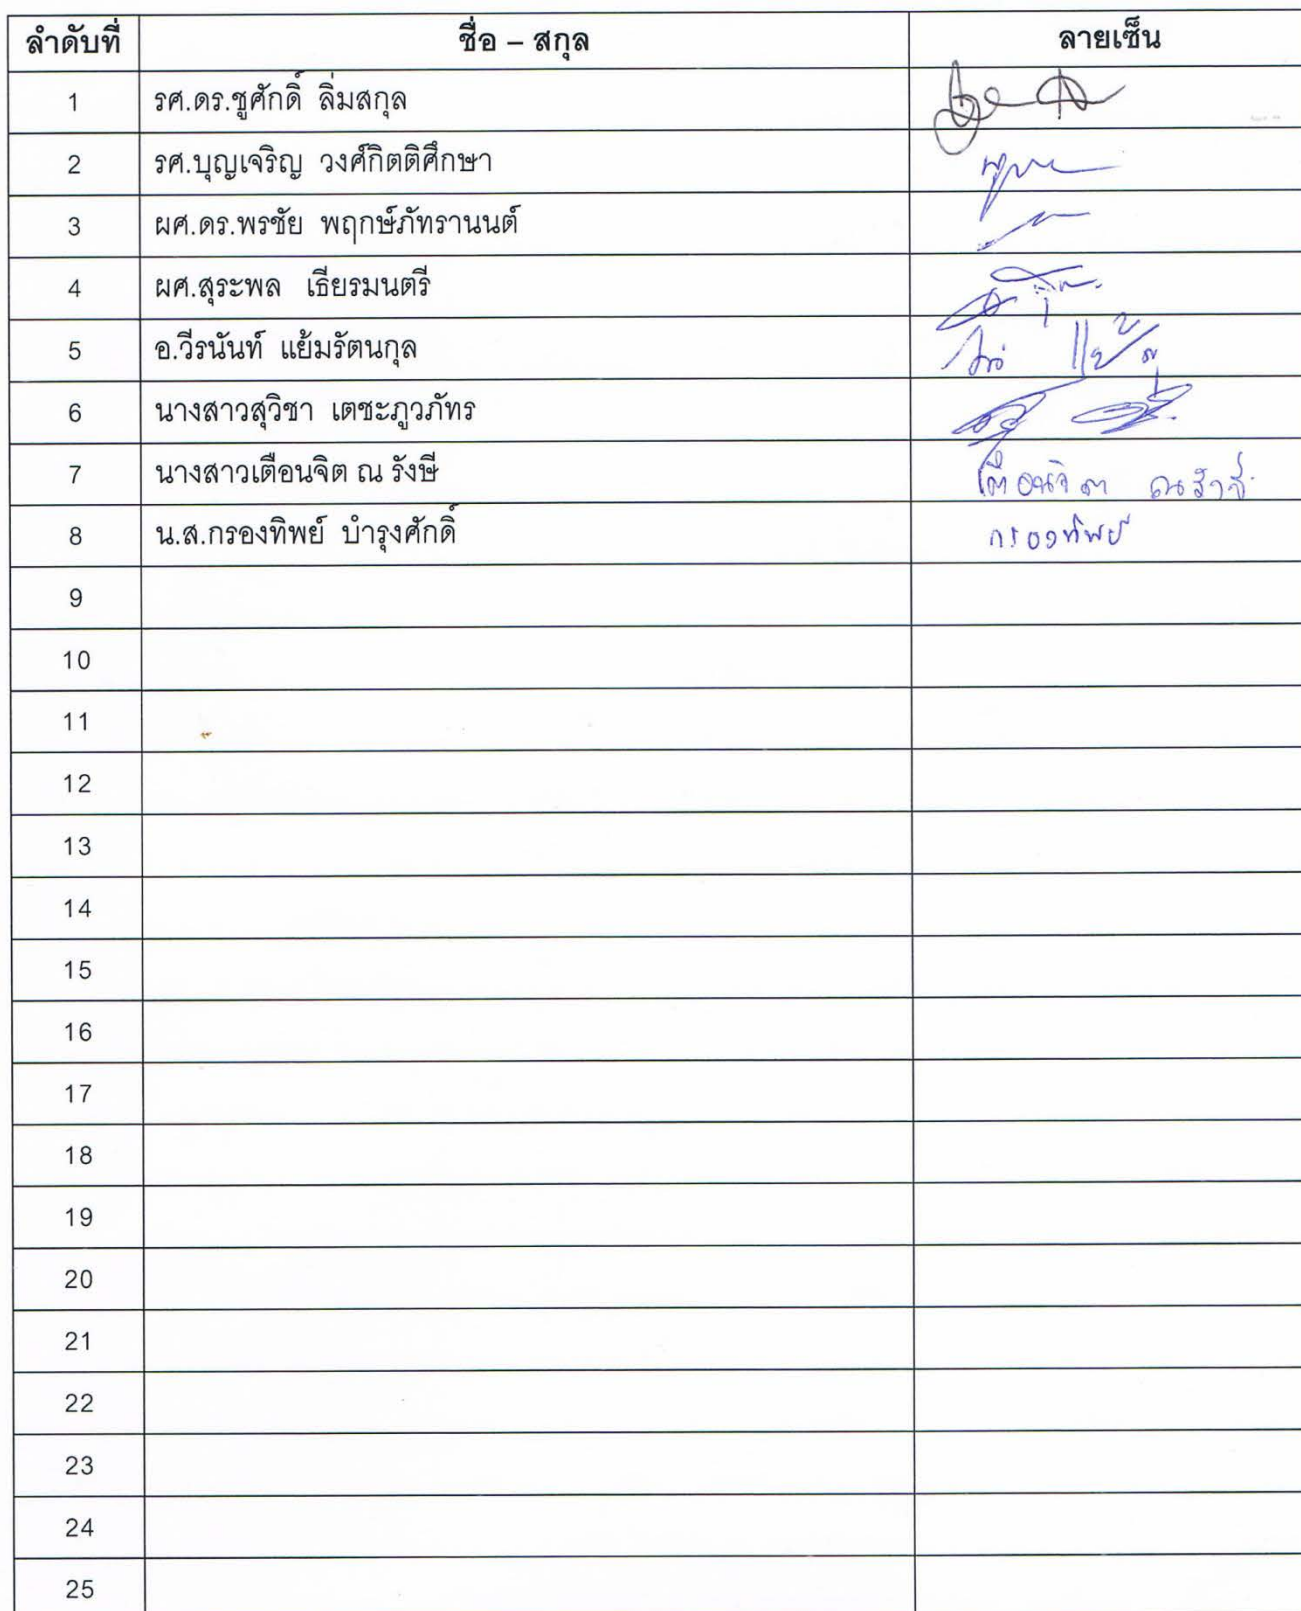 ลำดับที่ ชื่อ – สกุล ลายเซ็น
1 รศ.ดร.ชูศักดิ์ ลิ่มสกุล
2 รศ.บุญเจริญ วงศ์กิตติศึกษา
3 ผศ.ดร.พรชัย พฤกษ์ภัทรานนต์
4 ผศ.สุระพล เธียรมนตรี
5 อ.วีรนันท์ แย้มรัตนกุล
6 นางสาวสุวิชา เตชะภูวภัทร
7 นางสาวเตือนจิต ณ รังษี เตือนจิต ณ รังษี
8 น.ส.กรองทิพย์ บำรุงศักดิ์ กรองทิพย์
9
10
11
12
13
14
15
16
17
18
19
20
21
22
23
24
25